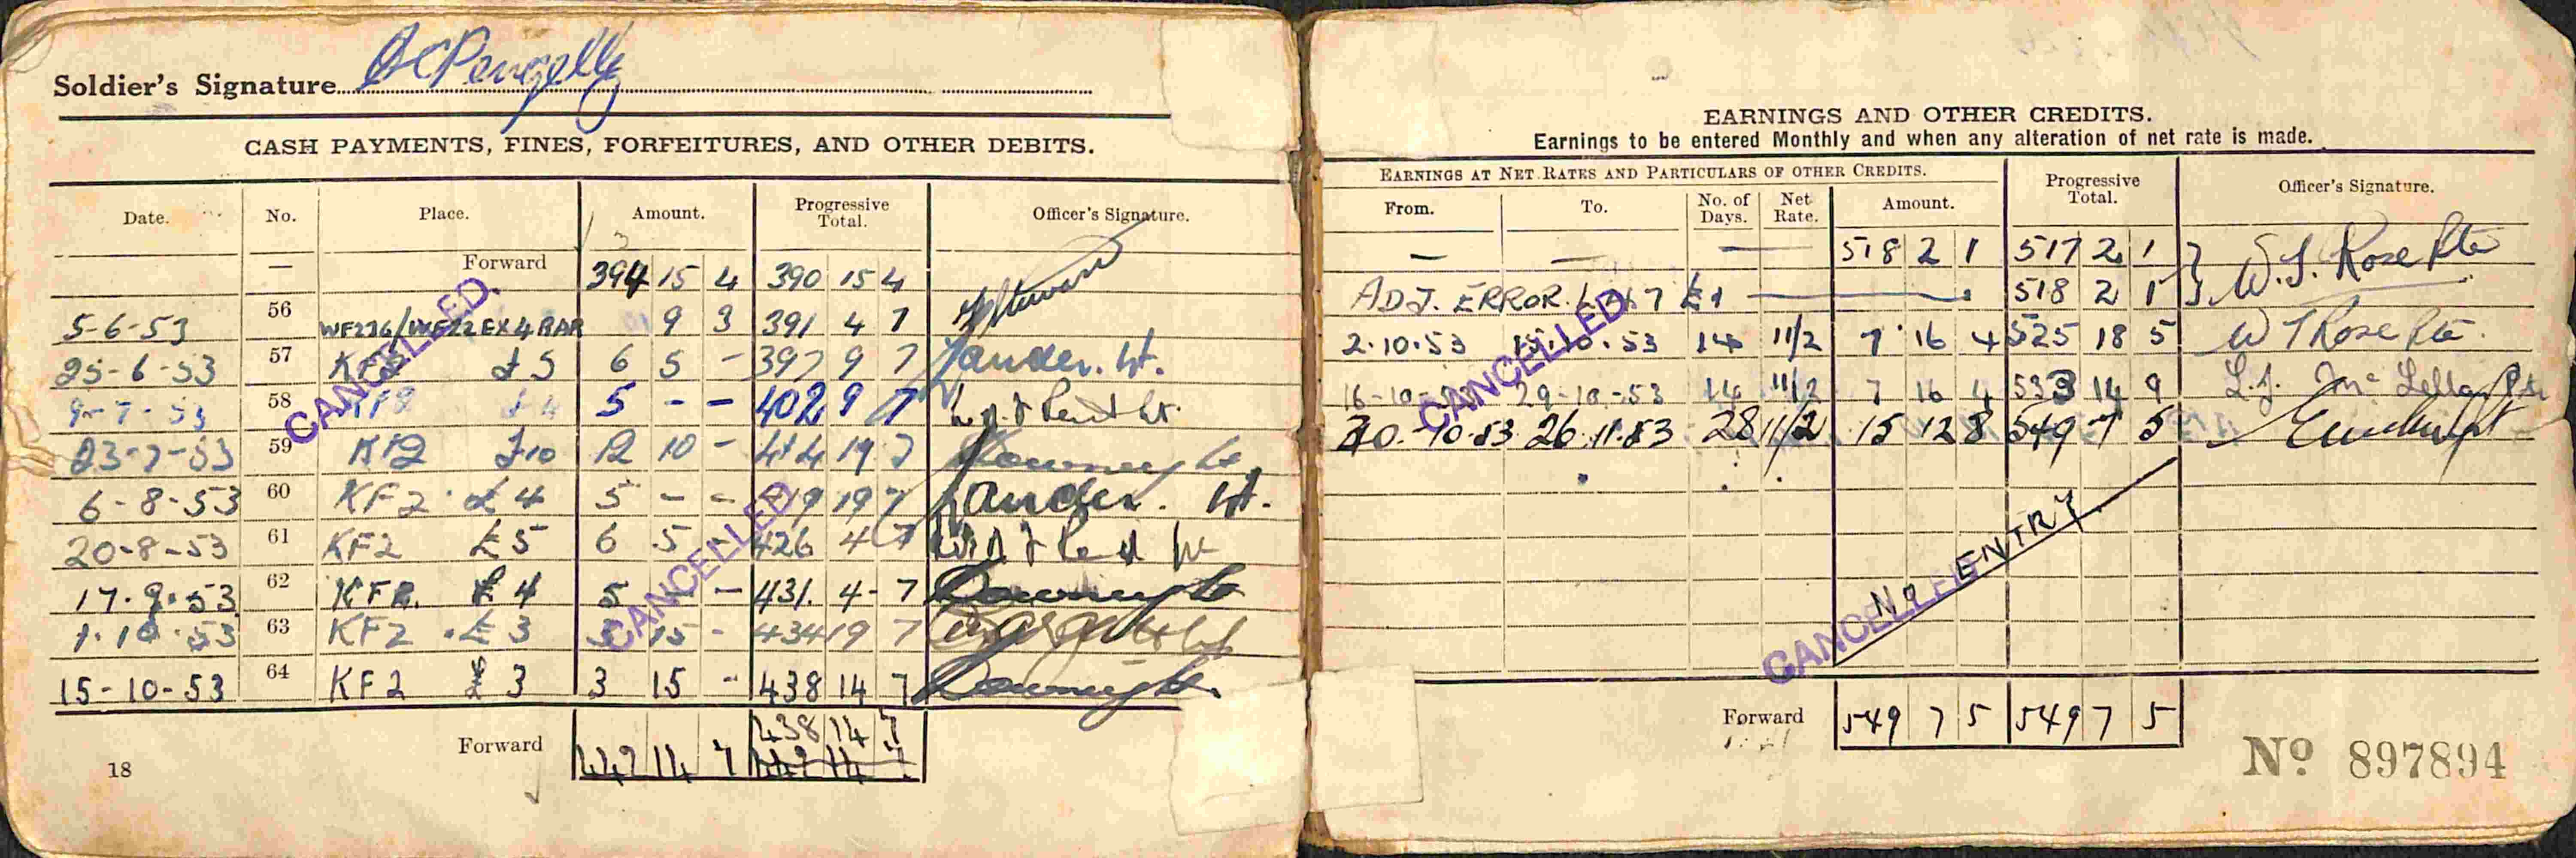 Soldier's Signature
CASH PAYMENTS, FINES, FORFEITURES, AND OTHER DEBITS.
Date. No. Place. Amount. Progressive Total. Officer's Signature.
— Forward 394 15 4 390 15 4
5-6-53 56 9 3 391 4 7
25-6-53 57 KF2 £5 6 5 - 397 9 7
9-7-53 58 KF2 £4 5 - - 402 9 7
23-7-53 59 KF2 £10 12 10 - 414 19 7
6-8-53 60 KF2 £4 5 - - 419 19 7
20-8-53 61 KF2 £5 6 5 - 426 4 7
17.9.53 62 KF2. £4 5 - - 431. 4- 7
1.10.53 63 KF2 £3 3 15 - 434 19 7
15-10-53 64 KF2 £3 3 15 - 438 14 7
438 14 7
Forward 442 14 7 442 14 7
18
CANCELLED.
CANCELLED
EARNINGS AND OTHER CREDITS.
Earnings to be entered Monthly and when any alteration of net rate is made.
EARNINGS AT NET RATES AND PARTICULARS OF OTHER CREDITS. Progressive Total. Officer's Signature.
From. To. No. of Days. Net Rate. Amount.
— — — 518 2 1 517 2 1 W.J. Rose Pte
ADJ. ERROR £1 518 2 1
2.10.53 15.10.53 14 11/2 7 16 4 525 18 5 W J Rose Pte.
16-10-53 29-10-53 14 11/2 7 16 4 533 14 9
30.-10-53 26.11.53 28 11/2 15 12 8 549 7 5
CANCELLED
No ENTRY
CANCELLED
Forward 549 7 5 549 7 5
No 897894